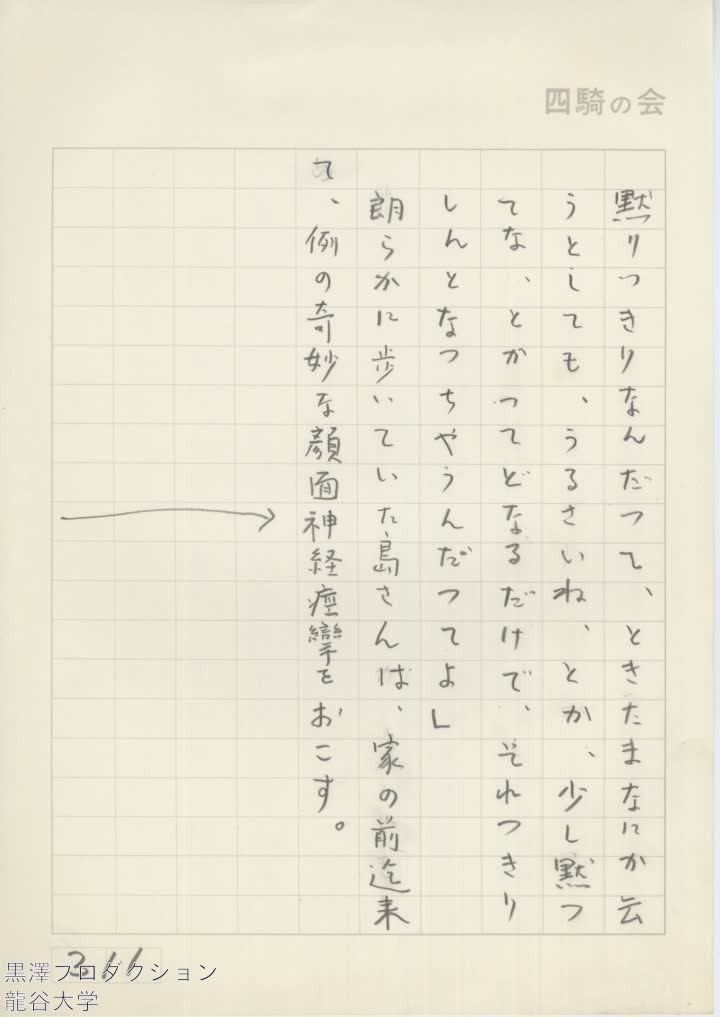 四騎の会
黙りつきりなんだつて、ときたまなにか云
うとしても、うるさいね、とか、少し黙つ
てな、とかつてどなるだけで、それつきり
しんとなつちやうんだつてよ」
朗らかに歩いていた島さんは、家の前迄来
て、例の奇妙な顔面神経痙攣をおこす。
311
黒澤プロダクション
龍谷大学